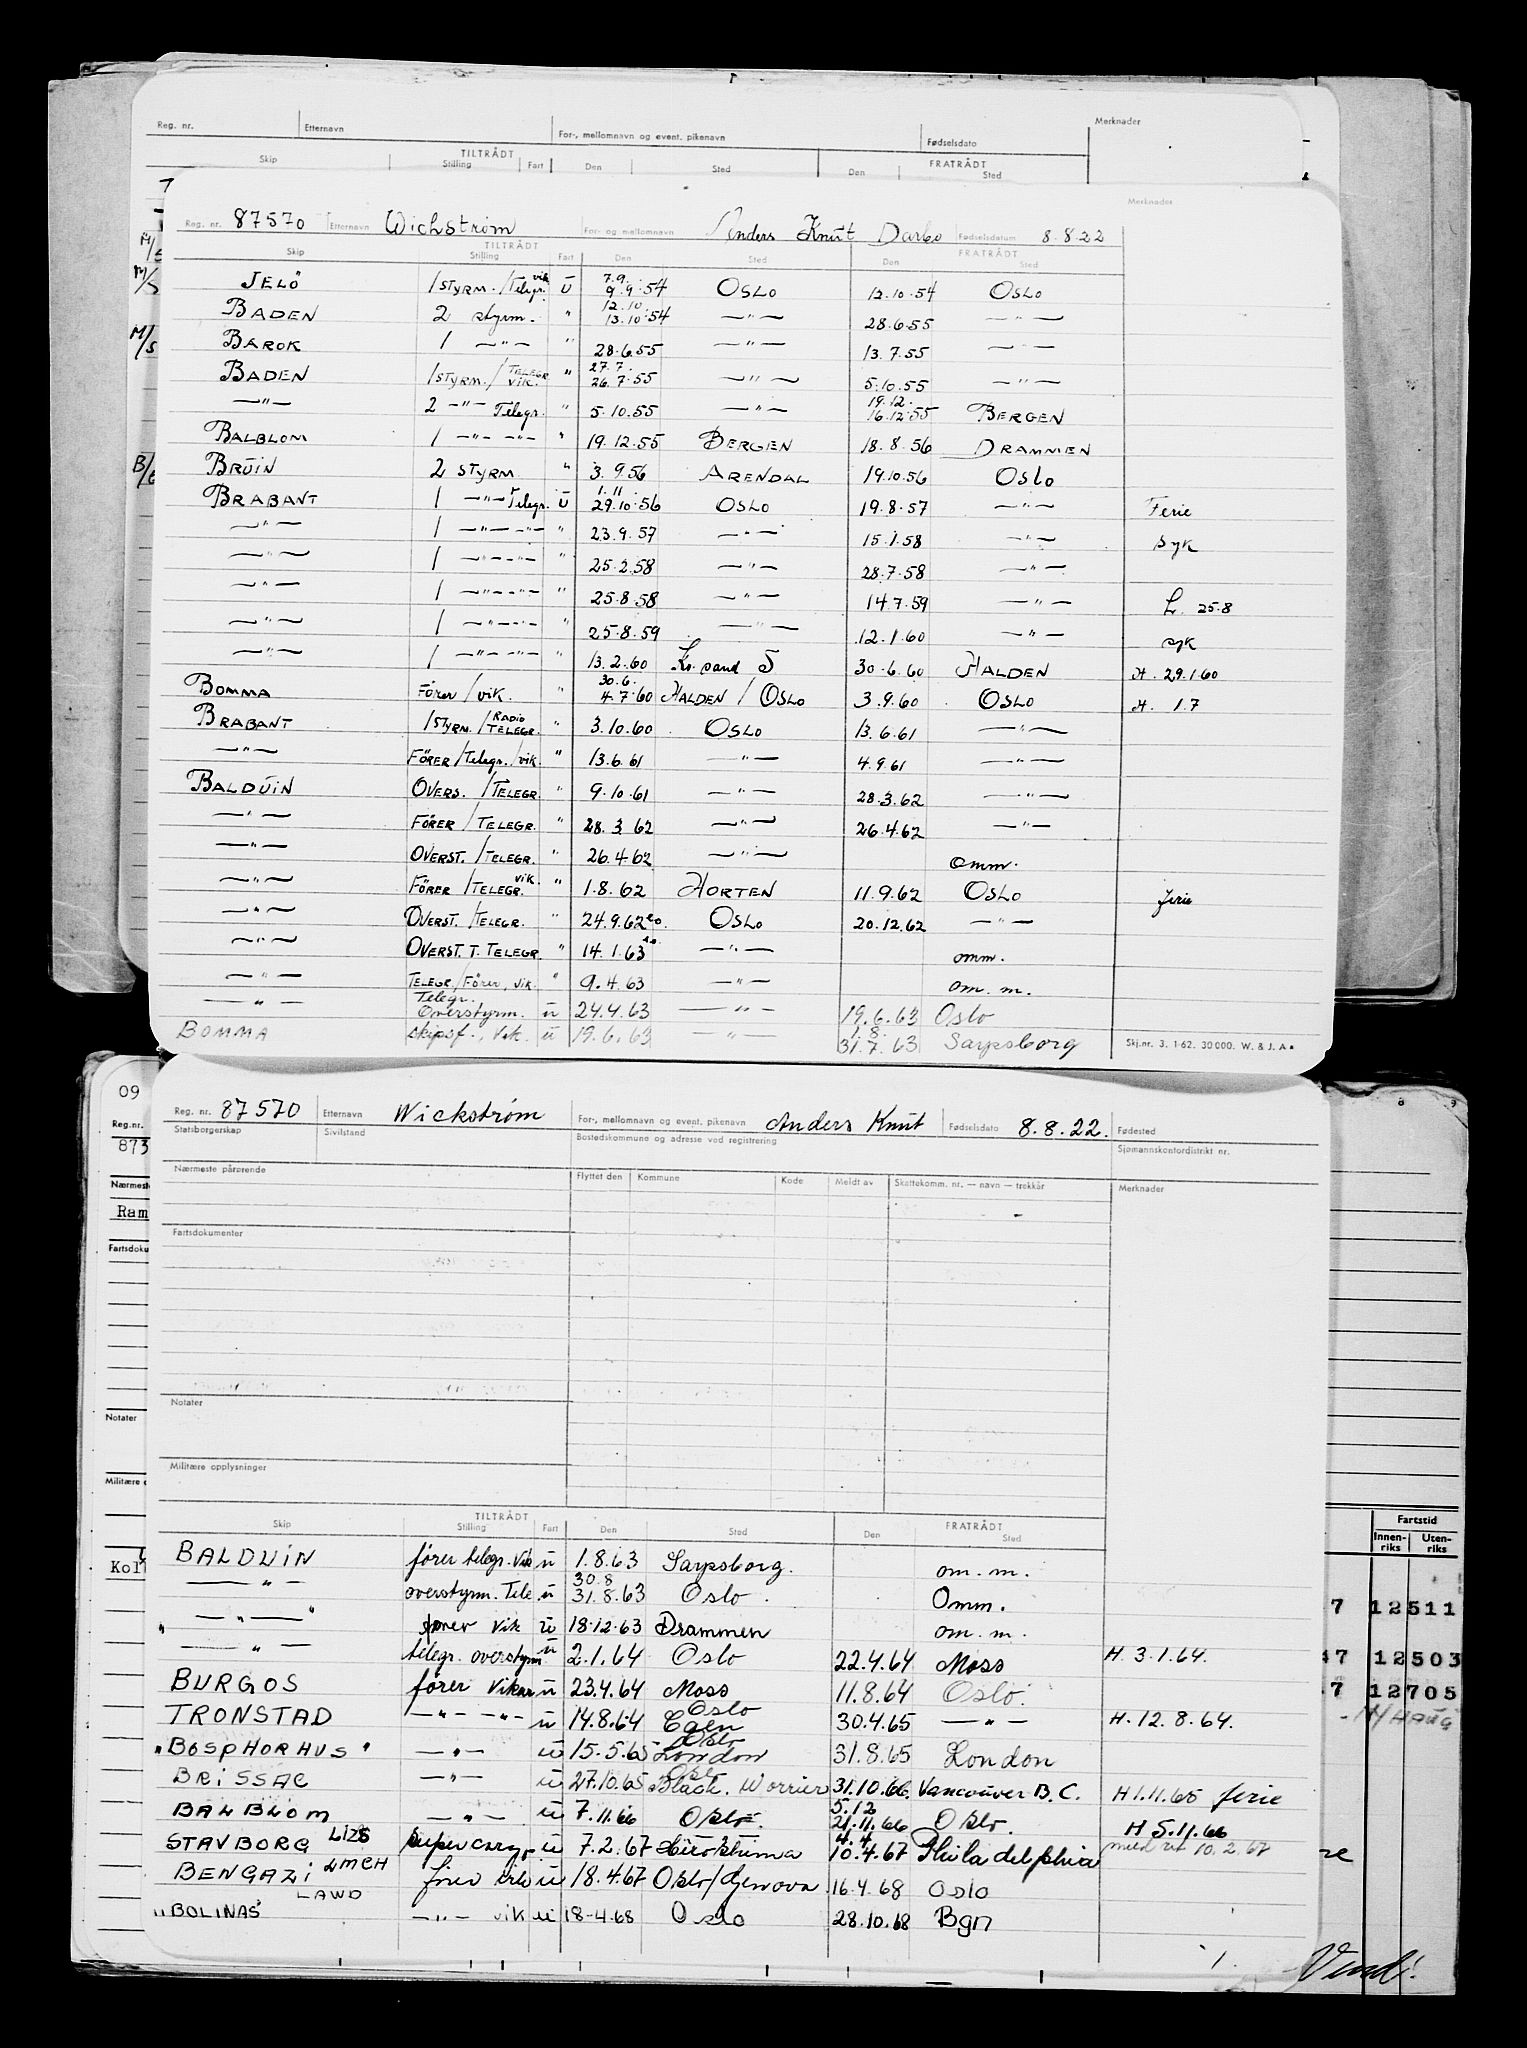 Reg. nr. Etternavn For-, mellomnavn og event. pikenavn Fødselsdato Merknader
Skip TILTRÅDT Stilling Fart Den Sted FRATRÅDT Den Sted
Merknader
Reg. nr. 87570 Etternavn Wichstrøm For- og mellomnavn Anders Knut Darbo Fødselsdatum 8.8.22
Skip TILTRÅDT Stilling Fart Den Sted FRATRÅDT Den Sted
M/S JELÖ 1 STYRM. / Telegr. vik u 7.9. 9.9.54 OSLO 12.10.54 OSLO
BADEN 2 styrm. " 12.10. 13.10.54 —"— 28.6.55 —"—
M/S BAROK 1 —"— " 28.6.55 —"— 13.7.55 —"—
BADEN 1 STYRM. / TELEGR VIK. " 27.7. 26.7.55 —"— 5.10.55 —"—
—"— 2 —"— Telegr. " 5.10.55 —"— 19.12. 16.12.55 BERGEN
BALBLOM 1 —"— —"— " 19.12.55 BERGEN 18.8.56 DRAMMEN
BRUIN 2 STYRM " 3.9.56 ARENDAL 19.10.56 OSLO
BRABANT 1 —"— Telegr. u 1.11 29.10.56 OSLO 19.8.57 —"— Ferie
—"— 1 —"— —"— " 23.9.57 —"— 15.1.58 —"— syk
—"— 1 —"— —"— " 25.2.58 —"— 28.7.58 —"—
—"— 1 —"— —"— " 25.8.58 —"— 14.7.59 —"— H. 25.8
—"— 1 —"— —"— " 25.8.59 —"— 12.1.60 —"— syk
—"— 1 —"— —"— " 13.2.60 Kr. sand S 30.6.60 HALDEN H. 29.1.60
BOMMA Förer / vik. " 30.6. 4.7.60 HALDEN / OSLO 3.9.60 OSLO H. 1.7
BRABANT 1 STYRM. / RADIO TELEGR. " 3.10.60 OSLO 13.6.61 —"—
—"— FÖRER / Telegr. / vik. " 13.6.61 —"— 4.9.61 —"—
BALDUIN OVERS. / TELEGR. " 9.10.61 —"— 28.3.62 —"—
—"— FÖRER / TELEGR. " 28.3.62 —"— 26.4.62 —"—
—"— OVERST. / TELEGR. " 26.4.62 —"— omm.
—"— FÖRER / TELEGR. vik. " 1.8.62 HORTEN 11.9.62 OSLO ferie
—"— OVERST. / TELEGR. " 24.9.62 OSLO 20.12.62 —"—
—"— OVERST. T. TELEGR. " 14.1.63 —"— omm.
—"— TELEGR. / Förer, vik. " 9.4.63 —"— om. m.
—"— Telegr. Overstyrm. u 24.4.63 —"— 19.6.63 Oslo
BOMMA skipsf., vik. u 19.6.63 —"— 1.8. 31.7.63 Sarpsborg
Skj.nr. 3. 1-62. 30000. W. & J. A.
Reg. nr. 87570 Etternavn Wickstrøm For-, mellomnavn og event. pikenavn Anders Knut Fødselsdato 8.8.22. Fødested
Statsborgerskap Sivilstand Bostedskommune og adresse ved registrering Sjømannskontordistrikt nr.
Nærmeste pårørende Flyttet den Kommune Kode Meldt av Skattekomm. nr. — navn — trekkår Merknader
Fartsdokumenter
Notater
Militære opplysninger
Skip TILTRÅDT Stilling Fart Den Sted FRATRÅDT Den Sted
BALDUIN fører telegr. Vik u 1.8.63 Sarpsborg. om. m.
—"— overstyrm. Tele u 30.8 31.8.63 Oslo. Omm.
—"— fører vik u 18.12.63 Drammen om. m.
—"— telegr. overstyrm u 2.1.64 Oslo 22.4.64 Moss H. 3.1.64.
BURGOS fører vikar u 23.4.64 Moss 11.8.64 Oslo.
TRONSTAD —"— —"— u 14.8.64 Oslo Caen 30.4.65 —"— H. 12.8.64.
"BOSPHORHUS" —"— u 15.5.65 Oslo London 31.8.65 London
BRISSAC —"— u 27.10.65 Osl Black. Worrier 31.10.66 Vancouver B.C. H 1.11.65 ferie
BALBLOM —"— u 7.11.66 Oslo. 5.12 21.11.66 Oslo. H 5.11.66
STAVBORG LIZS supercargo u 7.2.67 Hiroshima 4.4 10.4.67 Philadelphia med ret 10.2.67
BENGAZI LMCH fører vik u 18.4.67 Oslo/Genova 16.4.68 Oslo
"BOLINAS" LAWD —"— vik u 18-4.68 Oslo 28.10.68 Bgn
09
Reg.nr.
873
Nærmeste
Ram
Fartsdoku
Notater
Militære o
Kol
8 9
Fartstid
Innen-riks Uten-riks
7 12511
47 12503
7 12705
HAUG
re
Vend!